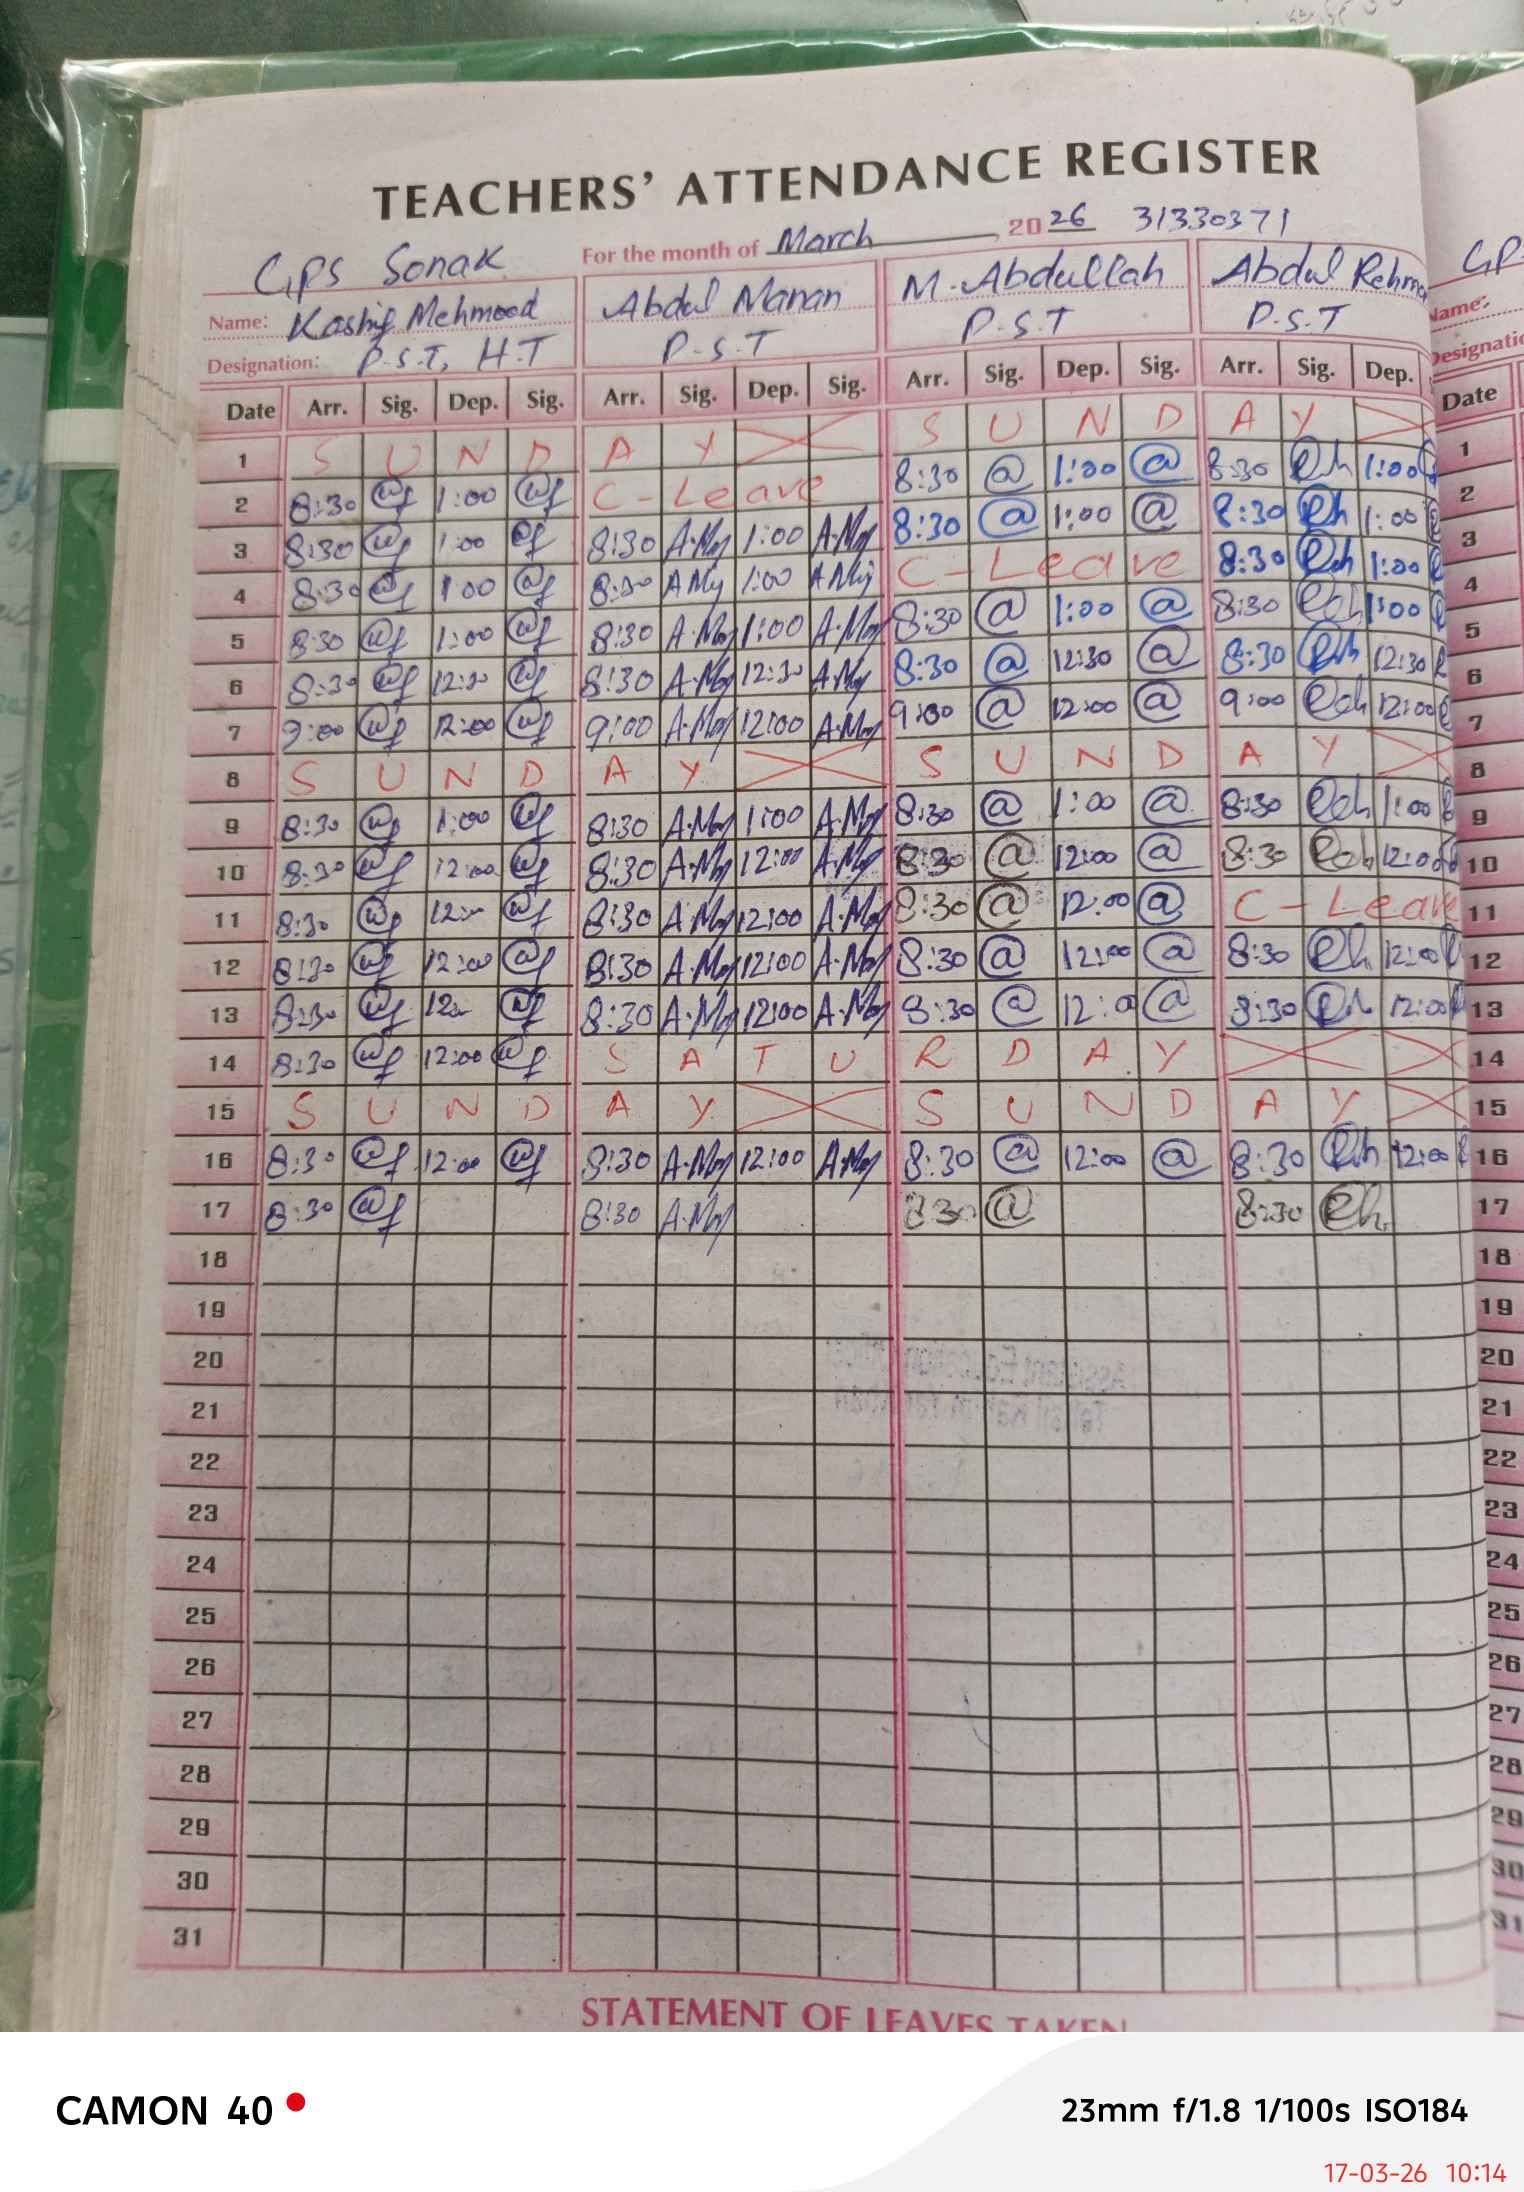 TEACHERS' ATTENDANCE REGISTER
GPS Sonak For the month of March, 2026 31330371
Name: Kashif Mehmood Abdul Manan M. Abdullah Abdul Rehma
Designation: P.S.T, H.T P.S.T P.S.T P.S.T
Date Arr. Sig. Dep. Sig. Arr. Sig. Dep. Sig. Arr. Sig. Dep. Sig. Arr. Sig. Dep. Date
1 S U N D A Y S U N D A Y 1
2 8:30 1:00 C-Leave 8:30 @ 1:00 @ 8:30 1:00 2
3 8:30 1:00 8:30 1:00 8:30 @ 1:00 @ 8:30 1:00 3
4 8:30 1:00 8:30 1:00 C-Leave 8:30 1:00 4
5 8:30 1:00 8:30 1:00 8:30 @ 1:00 @ 8:30 1:00 5
6 8:30 12:30 8:30 12:30 8:30 @ 12:30 @ 8:30 12:30 6
7 9:00 12:00 9:00 12:00 9:00 @ 12:00 @ 9:00 12:00 7
8 S U N D A Y S U N D A Y 8
9 8:30 1:00 8:30 1:00 8:30 @ 1:00 @ 8:30 1:00 9
10 8:30 12:00 8:30 12:00 8:30 @ 12:00 @ 8:30 12:00 10
11 8:30 8:30 12:00 8:30 @ 12:00 @ C-Leave 11
12 8:30 12:00 8:30 12:00 8:30 @ 12:00 @ 8:30 12:00 12
13 8:30 8:30 12:00 8:30 @ 12:0 @ 8:30 12:00 13
14 8:30 12:00 S A T U R D A Y 14
15 S U N D A Y S U N D A Y 15
16 8:30 12:00 8:30 12:00 8:30 @ 12:00 @ 8:30 12:00 16
17 8:30 8:30 8:30 @ 8:30 17
18 18
19 19
20 20
21 21
22 22
23 23
24 24
25 25
26 26
27 27
28 28
29 29
30 30
31 31
STATEMENT OF LEAVES TAKEN
CAMON 40 23mm f/1.8 1/100s ISO184
17-03-26 10:14